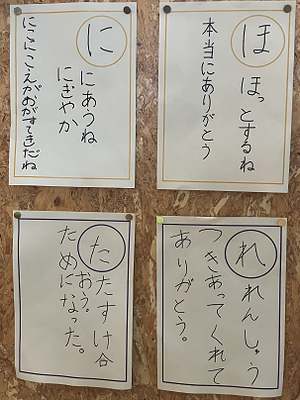 ほ
ほっとするね
本当にありがとう
に
にあうね
にぎやか
にこにこえがおがすてきだね
れ
れんしゅう
つきあってくれて
ありがとう。
た
たすけ合
おう。
ためになった。